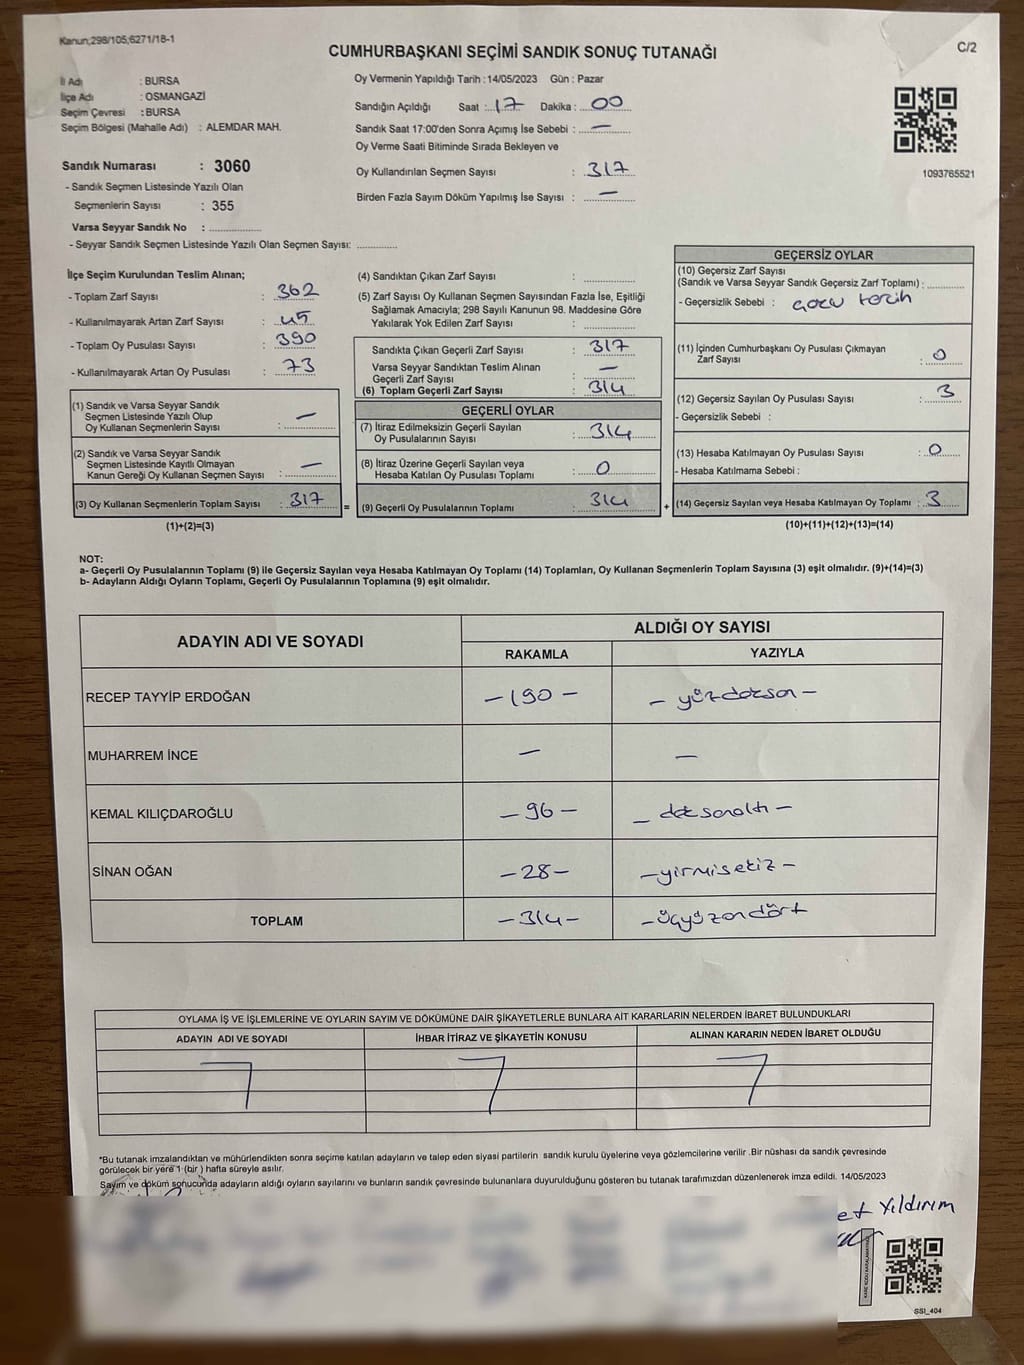 Kanun;298/105;6271/18-1
CUMHURBAŞKANI SEÇİMİ SANDIK SONUÇ TUTANAĞI
C/2
İl Adı : BURSA
İlçe Adı : OSMANGAZİ
Seçim Çevresi : BURSA
Seçim Bölgesi (Mahalle Adı) : ALEMDAR MAH.
Sandık Numarası : 3060
- Sandık Seçmen Listesinde Yazılı Olan
Seçmenlerin Sayısı : 355
Varsa Seyyar Sandık No : ................
- Seyyar Sandık Seçmen Listesinde Yazılı Olan Seçmen Sayısı: ............
Oy Vermenin Yapıldığı Tarih : 14/05/2023 Gün : Pazar
Sandığın Açıldığı Saat : 17 Dakika : 00
Sandık Saat 17:00'den Sonra Açımış İse Sebebi : —
Oy Verme Saati Bitiminde Sırada Bekleyen ve
Oy Kullandırılan Seçmen Sayısı : 317
Birden Fazla Sayım Döküm Yapılmış İse Sayısı : —
1093765521
İlçe Seçim Kurulundan Teslim Alınan;
- Toplam Zarf Sayısı : 362
- Kullanılmayarak Artan Zarf Sayısı : 45
- Toplam Oy Pusulası Sayısı : 390
- Kullanılmayarak Artan Oy Pusulası : 73
(1) Sandık ve Varsa Seyyar Sandık
Seçmen Listesinde Yazılı Olup
Oy Kullanan Seçmenlerin Sayısı : —
(2) Sandık ve Varsa Seyyar Sandık
Seçmen Listesinde Kayıtlı Olmayan
Kanun Gereği Oy Kullanan Seçmen Sayısı : —
(3) Oy Kullanan Seçmenlerin Toplam Sayısı : 317 =
(1)+(2)=(3)
(4) Sandıktan Çıkan Zarf Sayısı : ............
(5) Zarf Sayısı Oy Kullanan Seçmen Sayısından Fazla İse, Eşitliği
Sağlamak Amacıyla; 298 Sayılı Kanunun 98. Maddesine Göre
Yakılarak Yok Edilen Zarf Sayısı : ............
Sandıkta Çıkan Geçerli Zarf Sayısı : 317
Varsa Seyyar Sandıktan Teslim Alınan
Geçerli Zarf Sayısı : —
(6) Toplam Geçerli Zarf Sayısı : 314
GEÇERLİ OYLAR
(7) İtiraz Edilmeksizin Geçerli Sayılan
Oy Pusulalarının Sayısı : 314
(8) İtiraz Üzerine Geçerli Sayılan veya
Hesaba Katılan Oy Pusulası Toplamı : 0
(9) Geçerli Oy Pusulalarının Toplamı : 314 +
GEÇERSİZ OYLAR
(10) Geçersiz Zarf Sayısı
(Sandık ve Varsa Seyyar Sandık Geçersiz Zarf Toplamı) : ............
- Geçersizlik Sebebi :
(11) İçinden Cumhurbaşkanı Oy Pusulası Çıkmayan
Zarf Sayısı : 0
(12) Geçersiz Sayılan Oy Pusulası Sayısı : 3
- Geçersizlik Sebebi :
(13) Hesaba Katılmayan Oy Pusulası Sayısı : 0
- Hesaba Katılmama Sebebi :
(14) Geçersiz Sayılan veya Hesaba Katılmayan Oy Toplamı : 3
(10)+(11)+(12)+(13)=(14)
NOT:
a- Geçerli Oy Pusulalarının Toplamı (9) ile Geçersiz Sayılan veya Hesaba Katılmayan Oy Toplamı (14) Toplamları, Oy Kullanan Seçmenlerin Toplam Sayısına (3) eşit olmalıdır. (9)+(14)=(3)
b- Adayların Aldığı Oyların Toplamı, Geçerli Oy Pusulalarının Toplamına (9) eşit olmalıdır.
ADAYIN ADI VE SOYADI ALDIĞI OY SAYISI
RAKAMLA YAZIYLA
RECEP TAYYİP ERDOĞAN –190– – yüzdoksan –
MUHARREM İNCE — —
KEMAL KILIÇDAROĞLU –96– – doksanaltı –
SİNAN OĞAN –28– – yirmisekiz –
TOPLAM –314– – üçyüzondört
OYLAMA İŞ VE İŞLEMLERİNE VE OYLARIN SAYIM VE DÖKÜMÜNE DAİR ŞİKAYETLERLE BUNLARA AİT KARARLARIN NELERDEN İBARET BULUNDUKLARI
ADAYIN ADI VE SOYADI İHBAR İTİRAZ VE ŞİKAYETİN KONUSU ALINAN KARARIN NEDEN İBARET OLDUĞU
*Bu tutanak imzalandıktan ve mühürlendikten sonra seçime katılan adayların ve talep eden siyasi partilerin sandık kurulu üyelerine veya gözlemcilerine verilir .Bir nüshası da sandık çevresinde
görülecek bir yere 1 (bir ) hafta süreyle asılır.
Sayım ve döküm sonucunda adayların aldığı oyların sayılarını ve bunların sandık çevresinde bulunanlara duyurulduğunu gösteren bu tutanak tarafımızdan düzenlenerek imza edildi. 14/05/2023
et Yıldırım
SSI_404